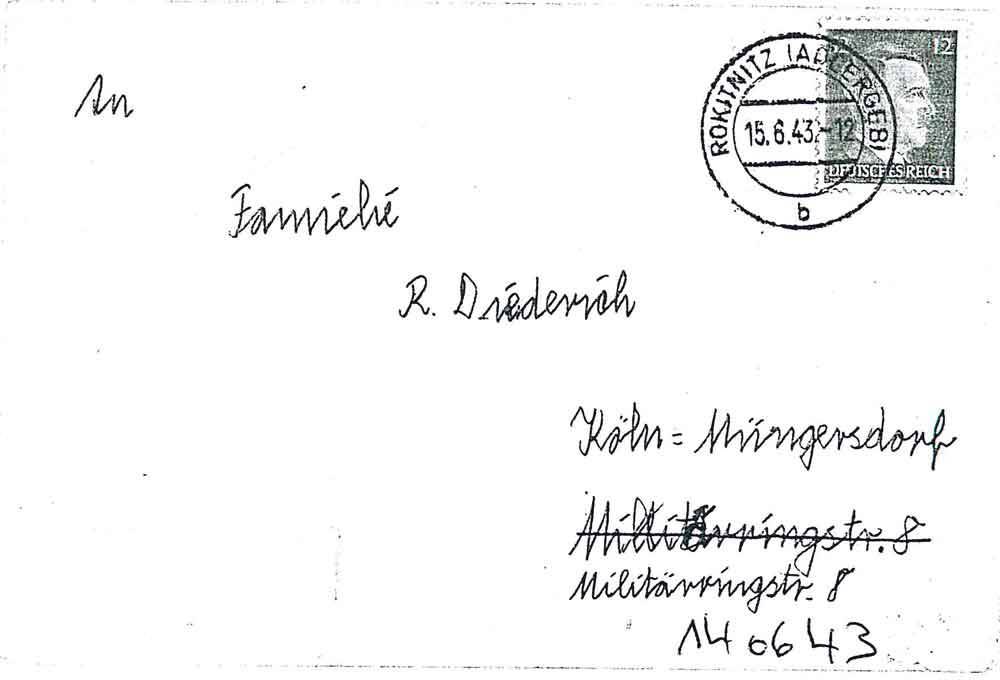 An
ROKITNITZ (ADLERGEB)
15.6.43.-12
b
12
DEUTSCHES REICH
Familie
R. Diederich
Köln = Müngersdorf
Militärringstr. 8
Militärringstr. 8
140643